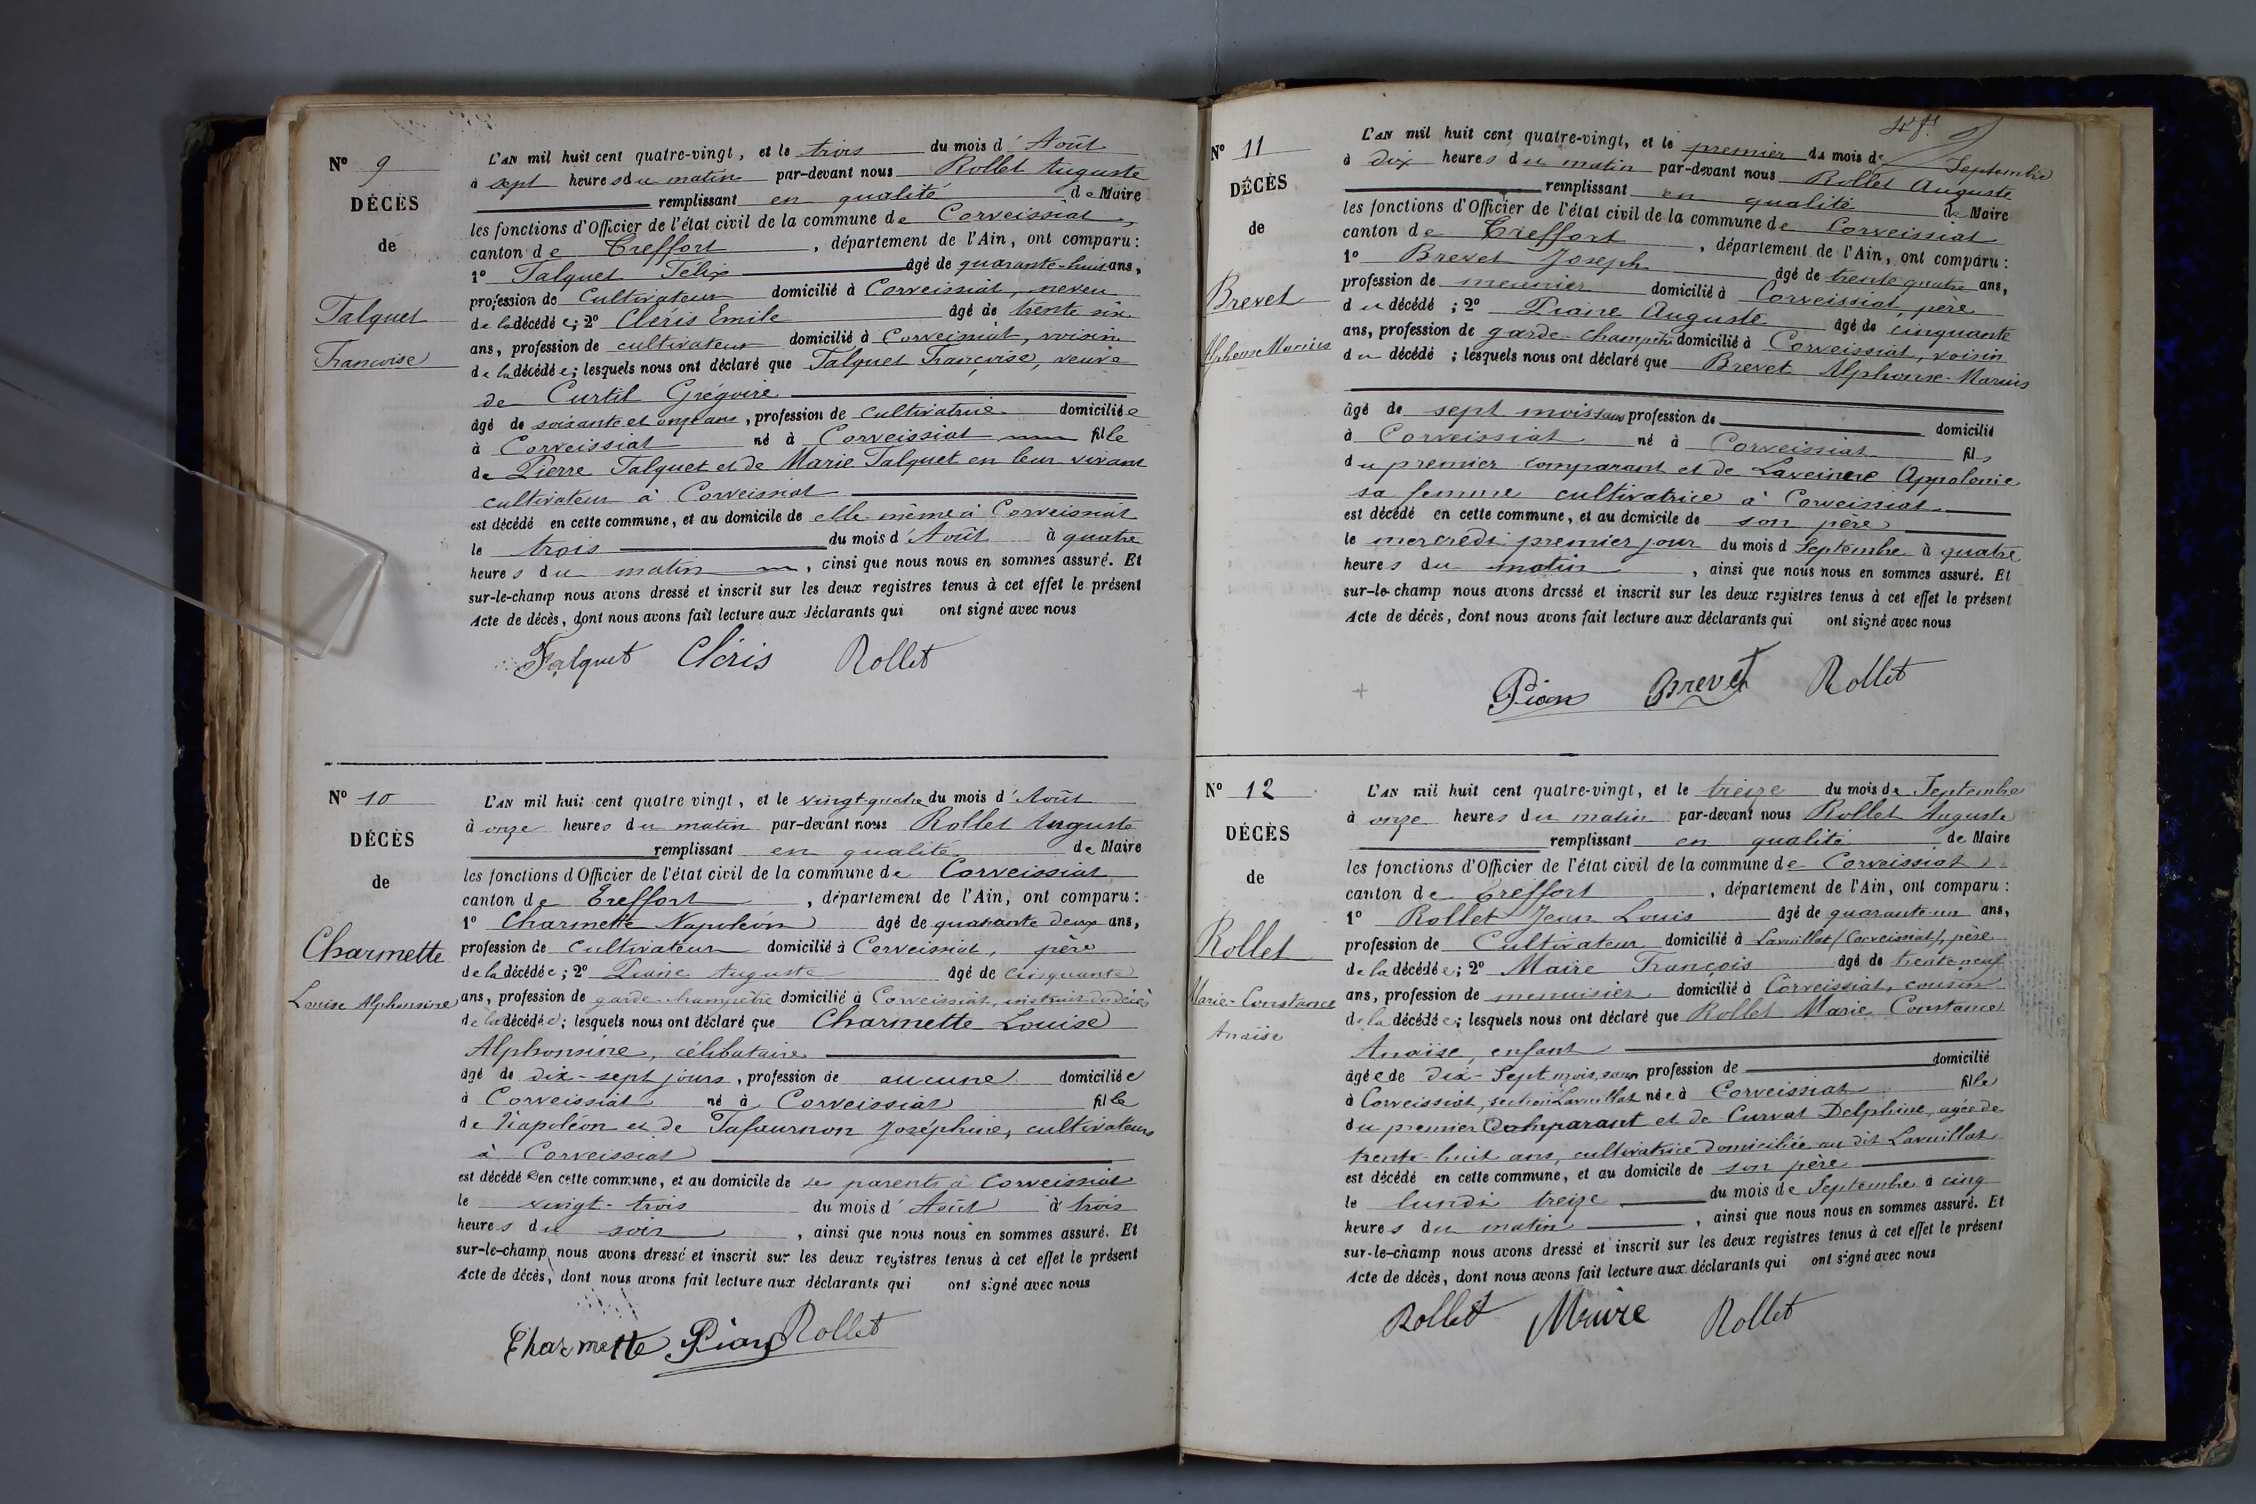 Nº 9
DÉCÈS
de
Falquet
Francoise
L'AN mil huit cent quatre-vingt, et le trois du mois d'Août
à sept heures du matin par-devant nous Rollet Auguste
remplissant en qualité de Maire
les fonctions d'Officier de l'état civil de la commune de Corveissiat,
canton de Treffort, département de l'Ain, ont comparu:
1º Falquet Félix âgé de quarante-huit ans,
profession de Cultivateur domicilié à Corveissiat, neveu
de la décédée; 2º Cléris Emile âgé de trente six
ans, profession de cultivateur domicilié à Corveissiat, voisin
de la décédée; lesquels nous ont déclaré que Falquet Françoise, veuve
de Curtil Grégoire
âgé de soixante et onze ans, profession de cultivatrice domiciliée
à Corveissiat né à Corveissiat fille
de Pierre Falquet et de Marie Falquet en leur vivant
cultivateur à Corveissiat
est décédé en cette commune, et au domicile de elle même à Corveissiat
le trois du mois d'Août à quatre
heures du matin, ainsi que nous nous en sommes assuré. Et
sur-le-champ nous avons dressé et inscrit sur les deux registres tenus à cet effet le présent
Acte de décès, dont nous avons fait lecture aux déclarants qui ont signé avec nous
Falquet Cléris Rollet
Nº 10
DÉCÈS
de
Charmette
Louise Alphonsine
L'AN mil huit cent quatre vingt, et le vingt-quatre du mois d'Août
à onze heures du matin par-devant nous Rollet Auguste
remplissant en qualité de Maire
les fonctions d'Officier de l'état civil de la commune de Corveissiat
canton de Treffort, département de l'Ain, ont comparu:
1º Charmette Napoléon âgé de quarante deux ans,
profession de Cultivateur domicilié à Corveissiat, père
de la décédée; 2º Piane Auguste âgé de cinquante
ans, profession de garde-champêtre domicilié à Corveissiat, instruit du décès
de la décédée; lesquels nous ont déclaré que Charmette Louise
Alphonsine, célibataire
âgé de dix-sept jours, profession de aucune domiciliée
à Corveissiat né à Corveissiat fille
de Napoléon et de Tafournon Joséphine, cultivateurs
à Corveissiat
est décédé en cette commune, et au domicile de se parents à Corveissiat
le vingt-trois du mois d'Août à trois
heures du soir, ainsi que nous nous en sommes assuré. Et
sur-le-champ nous avons dressé et inscrit sur les deux registres tenus à cet effet le présent
Acte de décès, dont nous avons fait lecture aux déclarants qui ont signé avec nous
Charmette Pian Rollet
Nº 11
DÉCÈS
de
Brevet
Alphonse Marius
L'AN mil huit cent quatre-vingt, et le premier du mois de Septembre
à dix heures du matin par-devant nous Rollet Auguste
remplissant en qualité de Maire
les fonctions d'Officier de l'état civil de la commune de Corveissiat
canton de Treffort, département de l'Ain, ont comparu:
1º Brevet Joseph âgé de trente quatre ans,
profession de meunier domicilié à Corveissiat, père
du décédé; 2º Piane Auguste âgé de cinquante
ans, profession de garde-champêtre domicilié à Corveissiat, voisin
du décédé; lesquels nous ont déclaré que Brevet Alphonse-Marius
âgé de sept mois sans profession de domicilié
à Corveissiat né à Corveissiat fils
du premier comparant et de Laveinere Appolonie
sa femme cultivatrice à Corveissiat
est décédé en cette commune, et au domicile de son père
le mercredi premier jour du mois d Septembre à quatre
heures du matin, ainsi que nous nous en sommes assuré. Et
sur-le-champ nous avons dressé et inscrit sur les deux registres tenus à cet effet le présent
Acte de décès, dont nous avons fait lecture aux déclarants qui ont signé avec nous
Pian Brevet Rollet
Nº 12
DÉCÈS
de
Rollet
Marie-Constance
Anaïse
L'AN mil huit cent quatre-vingt, et le treize du mois de Septembre
à onze heures du matin par-devant nous Rollet Auguste
remplissant en qualité de Maire
les fonctions d'Officier de l'état civil de la commune de Corveissiat
canton de Treffort, département de l'Ain, ont comparu:
1º Rollet Jean Louis âgé de quarante-un ans,
profession de Cultivateur domicilié à Lavuillat (Corveissiat), père
de la décédée; 2º Maire François âgé de trente neuf
ans, profession de menuisier domicilié à Corveissiat, cousin
de la décédée; lesquels nous ont déclaré que Rollet Marie Constance
Anaïse, enfant
âgée de dix-sept mois, sans profession de domicilié
à Corveissiat, section Lavuillat née à Corveissiat fille
du premier Comparant et de Curvat Delphine, agée de
trente-huit ans, cultivatrice domiciliée au dit Lavuillat
est décédé en cette commune, et au domicile de son père
le lundi treize du mois de Septembre à cinq
heures du matin, ainsi que nous nous en sommes assuré. Et
sur-le-champ nous avons dressé et inscrit sur les deux registres tenus à cet effet le présent
Acte de décès, dont nous avons fait lecture aux déclarants qui ont signé avec nous
Rollet Maire Rollet